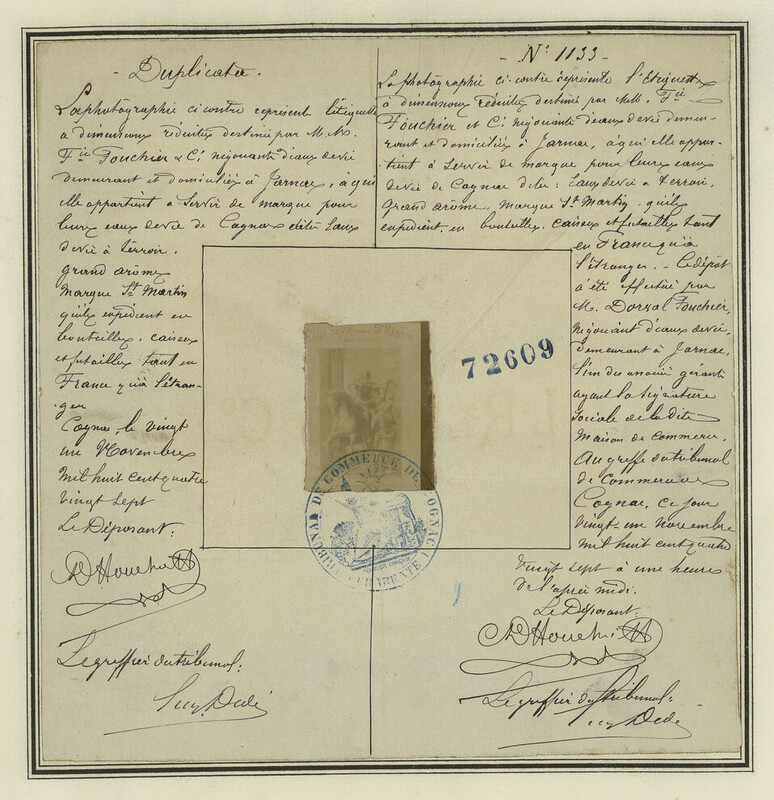 - Duplicata -
La photographie ci contre représente l'étiquette
à dimensions réduites destiné par M. M.
Fçis Fouchier & Cie négociants d'eaux de vie
demeurant et domiciliés à Jarnac, à qui
elle appartient à servir de marque pour
leurs eaux de vie de Cognac dites Eaux
de vie à terroir.
grand arôme
Marque St Martin
qu'ils expédient en
bouteilles, caisses
et futailles tant en
France qu'à l'étran-
-ger
Cognac, le vingt
un Novembre
mil huit cent quatre
vingt sept
Le Déposant:
Le greffier du tribunal:
- No 1133 -
La photographie ci-contre représente l'Etiquette
à dimensions réduites destiné par MM.
Fouchier et Cie négociants d'eaux de vie demeu-
rant et domiciliés à Jarnac, à qui elle appar-
tient à servir de marque pour leurs eaux
de vie de Cognac dites: Eaux de vie à terroir,
Grand arôme, Marque St Martin qu'ils
expédient en bouteilles, caisses et futailles tant
en France qu'à
l'étranger. - Le dépôt
a été effectué par
M. Dorval Fouchier,
négociant d'eaux de vie,
demeurant à Jarnac,
l'un des associés gérants
ayant la signature
sociale de la dite
Maison de Commerce.
Au greffe du tribunal
de Commerce de
Cognac, ce jour
vingt un novembre
mil huit cent quatre
vingt sept à une heure
de l'après midi.
Le Déposant:
Le greffier du tribunal:
72609
TRIBUNAL DE COMMERCE DE COGNAC (CHARENTE)